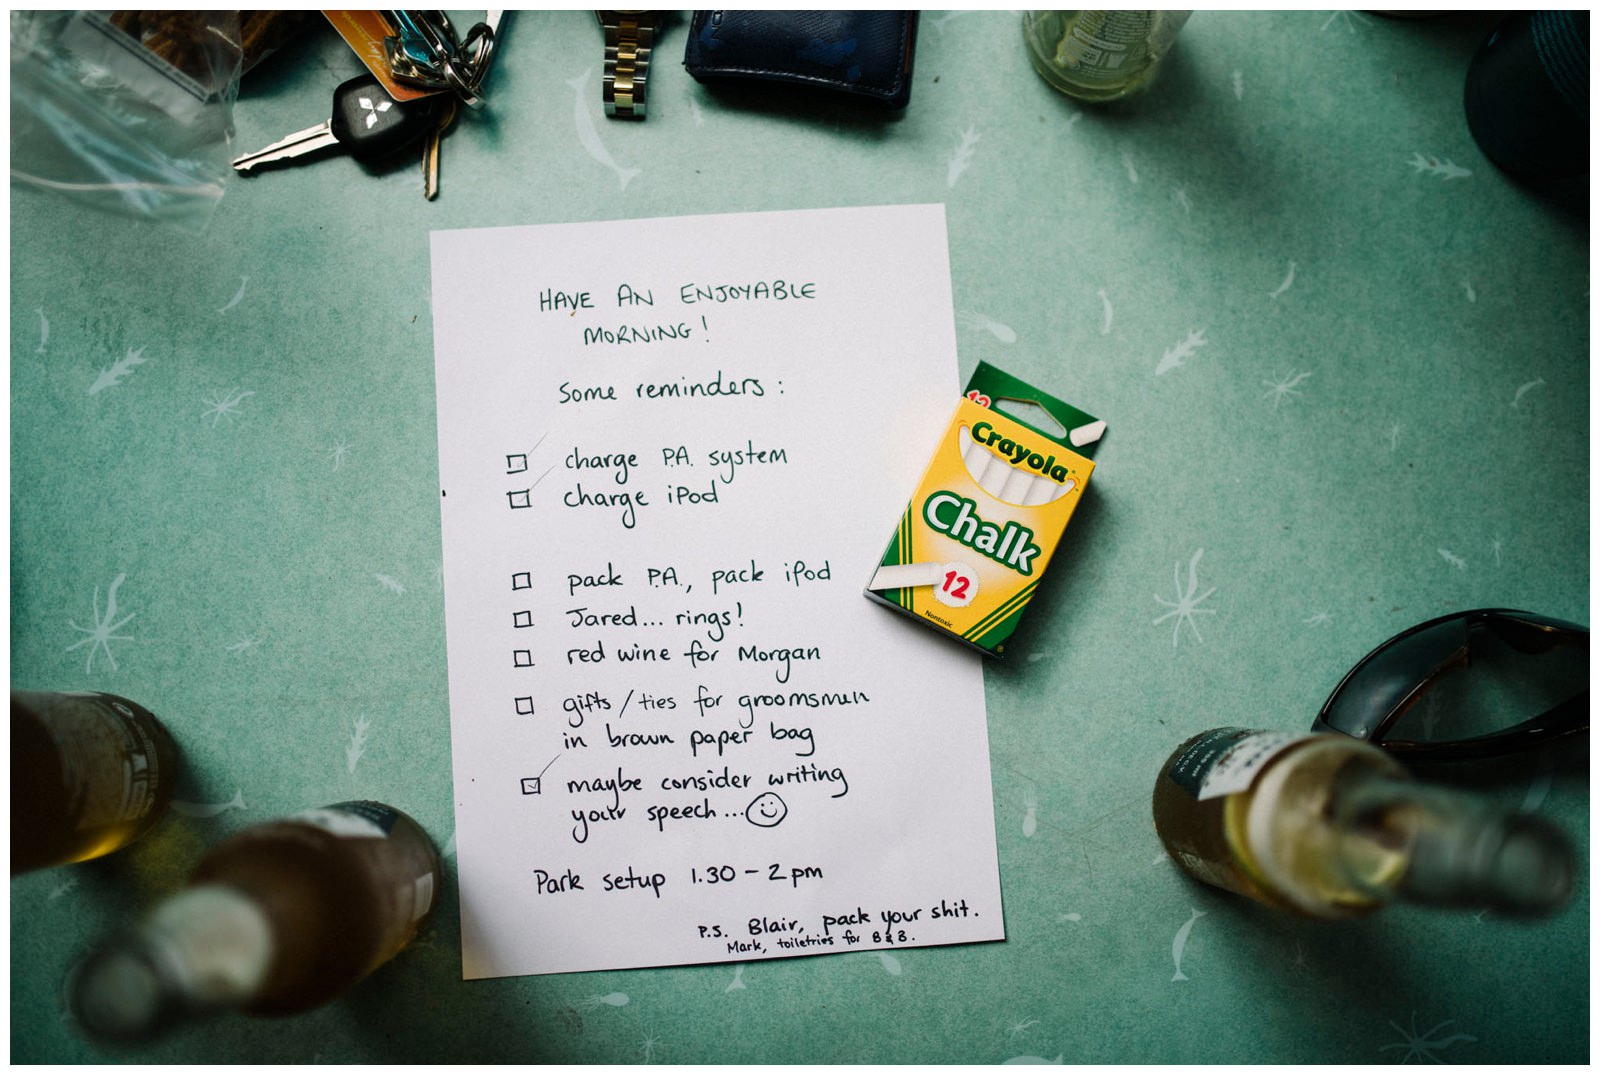 HAVE AN ENJOYABLE
MORNING!
Some reminders:
charge P.A. system
charge iPod
pack P.A., pack iPod
Jared... rings!
red wine for Morgan
gifts/ties for groomsmen
in brown paper bag
maybe consider writing
your speech...
Park setup 1.30 - 2pm
P.S. Blair, pack your shit.
Mark, toiletries for B & B.
12
Crayola
Chalk
12
Nontoxic